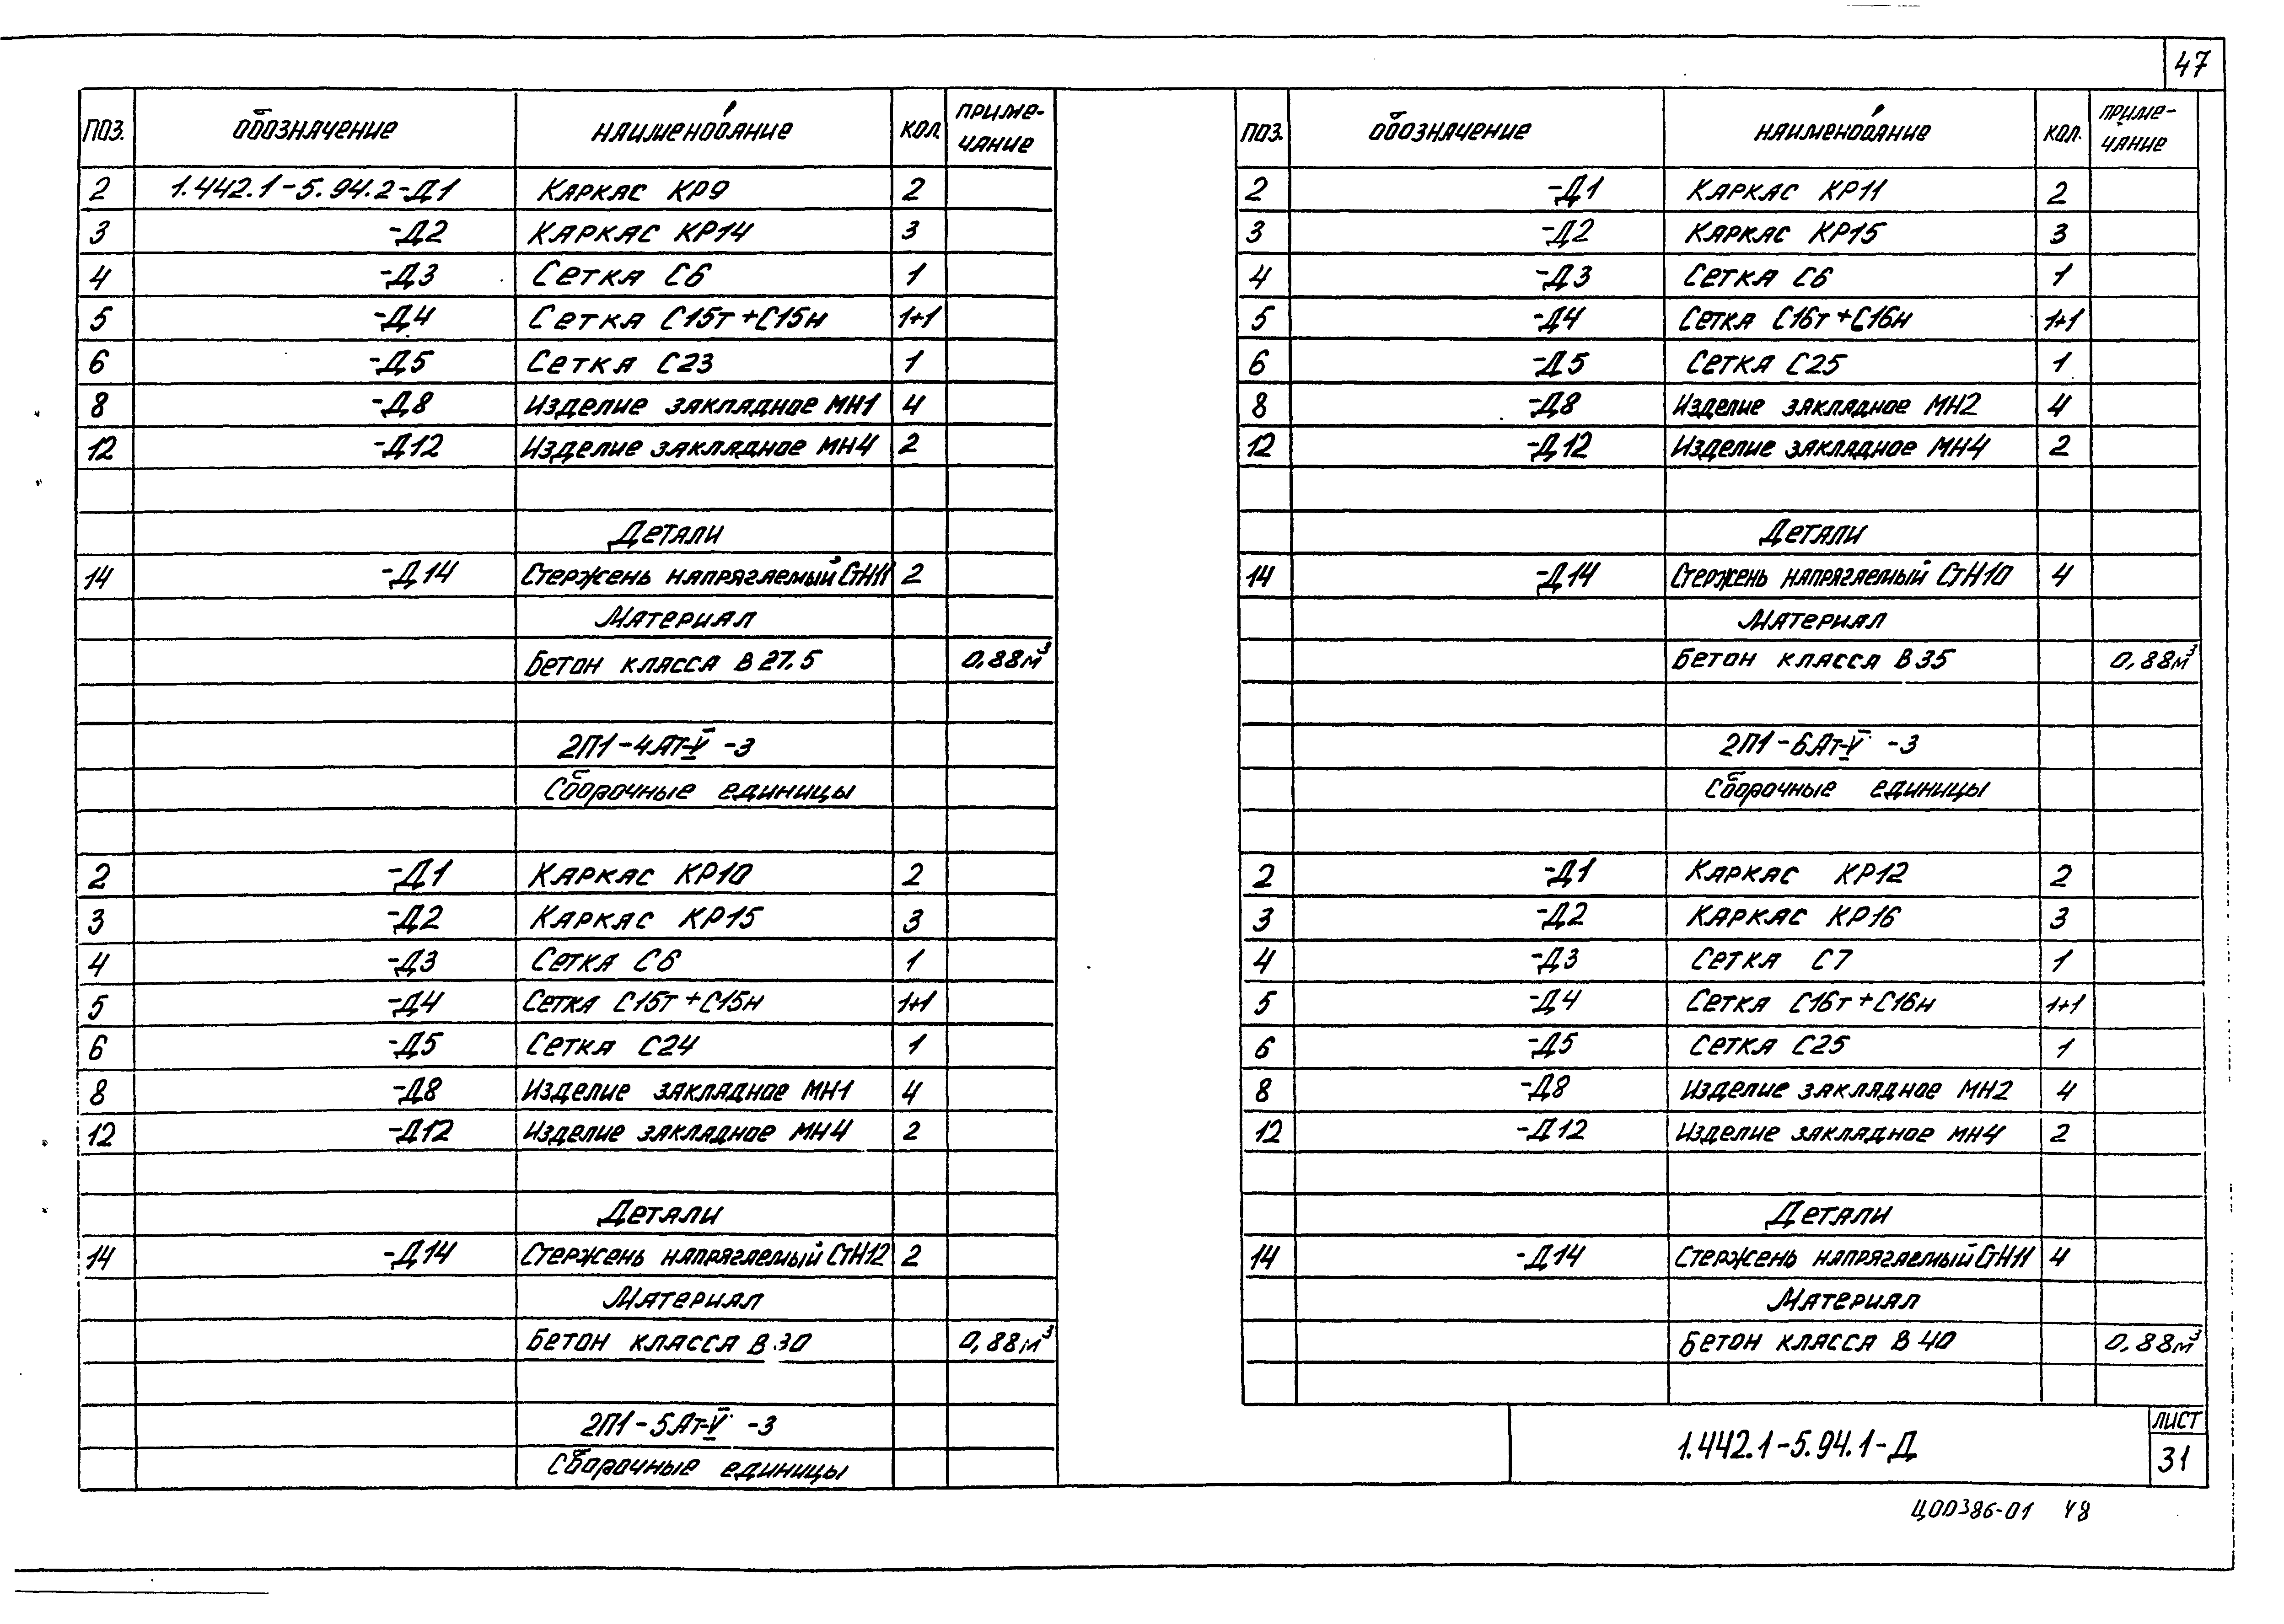 47
Поз. Обозначение Наименование Кол. Примечание
2 1.442.1-5.94.2-Д1 Каркас КР9 2
3 -Д2 Каркас КР14 3
4 -Д3 Сетка С6 1
5 -Д4 Сетка С15т+С15н 1+1
6 -Д5 Сетка С23 1
8 -Д8 Изделие закладное МН1 4
12 -Д12 Изделие закладное МН4 2
Детали
14 -Д14 Стержень напрягаемый СтН11 2
Материал
Бетон класса В27.5 0,88м³
2П1-4Ат-V -3
Сборочные единицы
2 -Д1 Каркас КР10 2
3 -Д2 Каркас КР15 3
4 -Д3 Сетка С6 1
5 -Д4 Сетка С15т+С15н 1+1
6 -Д5 Сетка С24 1
8 -Д8 Изделие закладное МН1 4
12 -Д12 Изделие закладное МН4 2
Детали
14 -Д14 Стержень напрягаемый СтН12 2
Материал
Бетон класса В30 0,88м³
2П1-5Ат-V -3
Сборочные единицы
Поз. Обозначение Наименование Кол. Примечание
2 -Д1 Каркас КР11 2
3 -Д2 Каркас КР15 3
4 -Д3 Сетка С6 1
5 -Д4 Сетка С16т+С16н 1+1
6 -Д5 Сетка С25 1
8 -Д8 Изделие закладное МН2 4
12 -Д12 Изделие закладное МН4 2
Детали
14 -Д14 Стержень напрягаемый СтН10 4
Материал
Бетон класса В35 0,88м³
2П1-6Ат-V -3
Сборочные единицы
2 -Д1 Каркас КР12 2
3 -Д2 Каркас КР16 3
4 -Д3 Сетка С7 1
5 -Д4 Сетка С16т+С16н 1+1
6 -Д5 Сетка С25 1
8 -Д8 Изделие закладное МН2 4
12 -Д12 Изделие закладное МН4 2
Детали
14 -Д14 Стержень напрягаемый СтН11 4
Материал
Бетон класса В40 0,88м³
1.442.1-5.94.1-Д
Лист
31
Ц00386-01 48